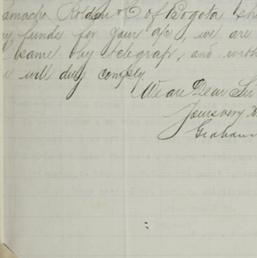 amacho Roldan & Co of Bogota
y funds for your a/c, we are
same by telegraph, and with
will duly comply
We are Dear Sir
Yours very
Graham